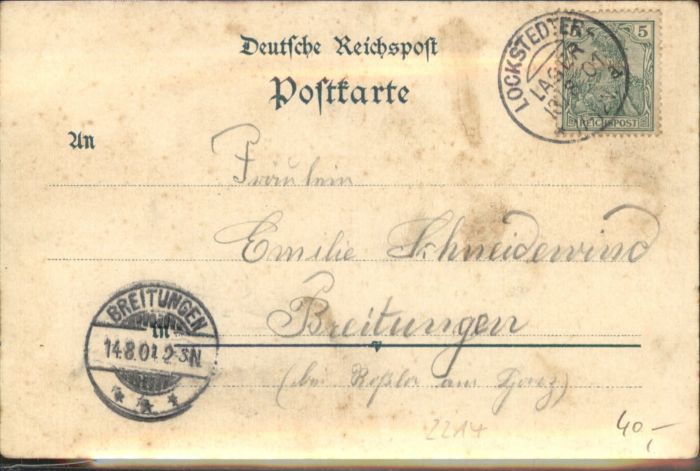 Deutsche Reichspost
Postkarte
LOCKSTEDTER
LAGER
13.8.01
5
REICHSPOST
An
Fräulein
Emilie Schneidewind
BREITUNGEN
in
14.8.01 2-3N
Breitungen
(bei Roßla am Harz)
2214
40,-